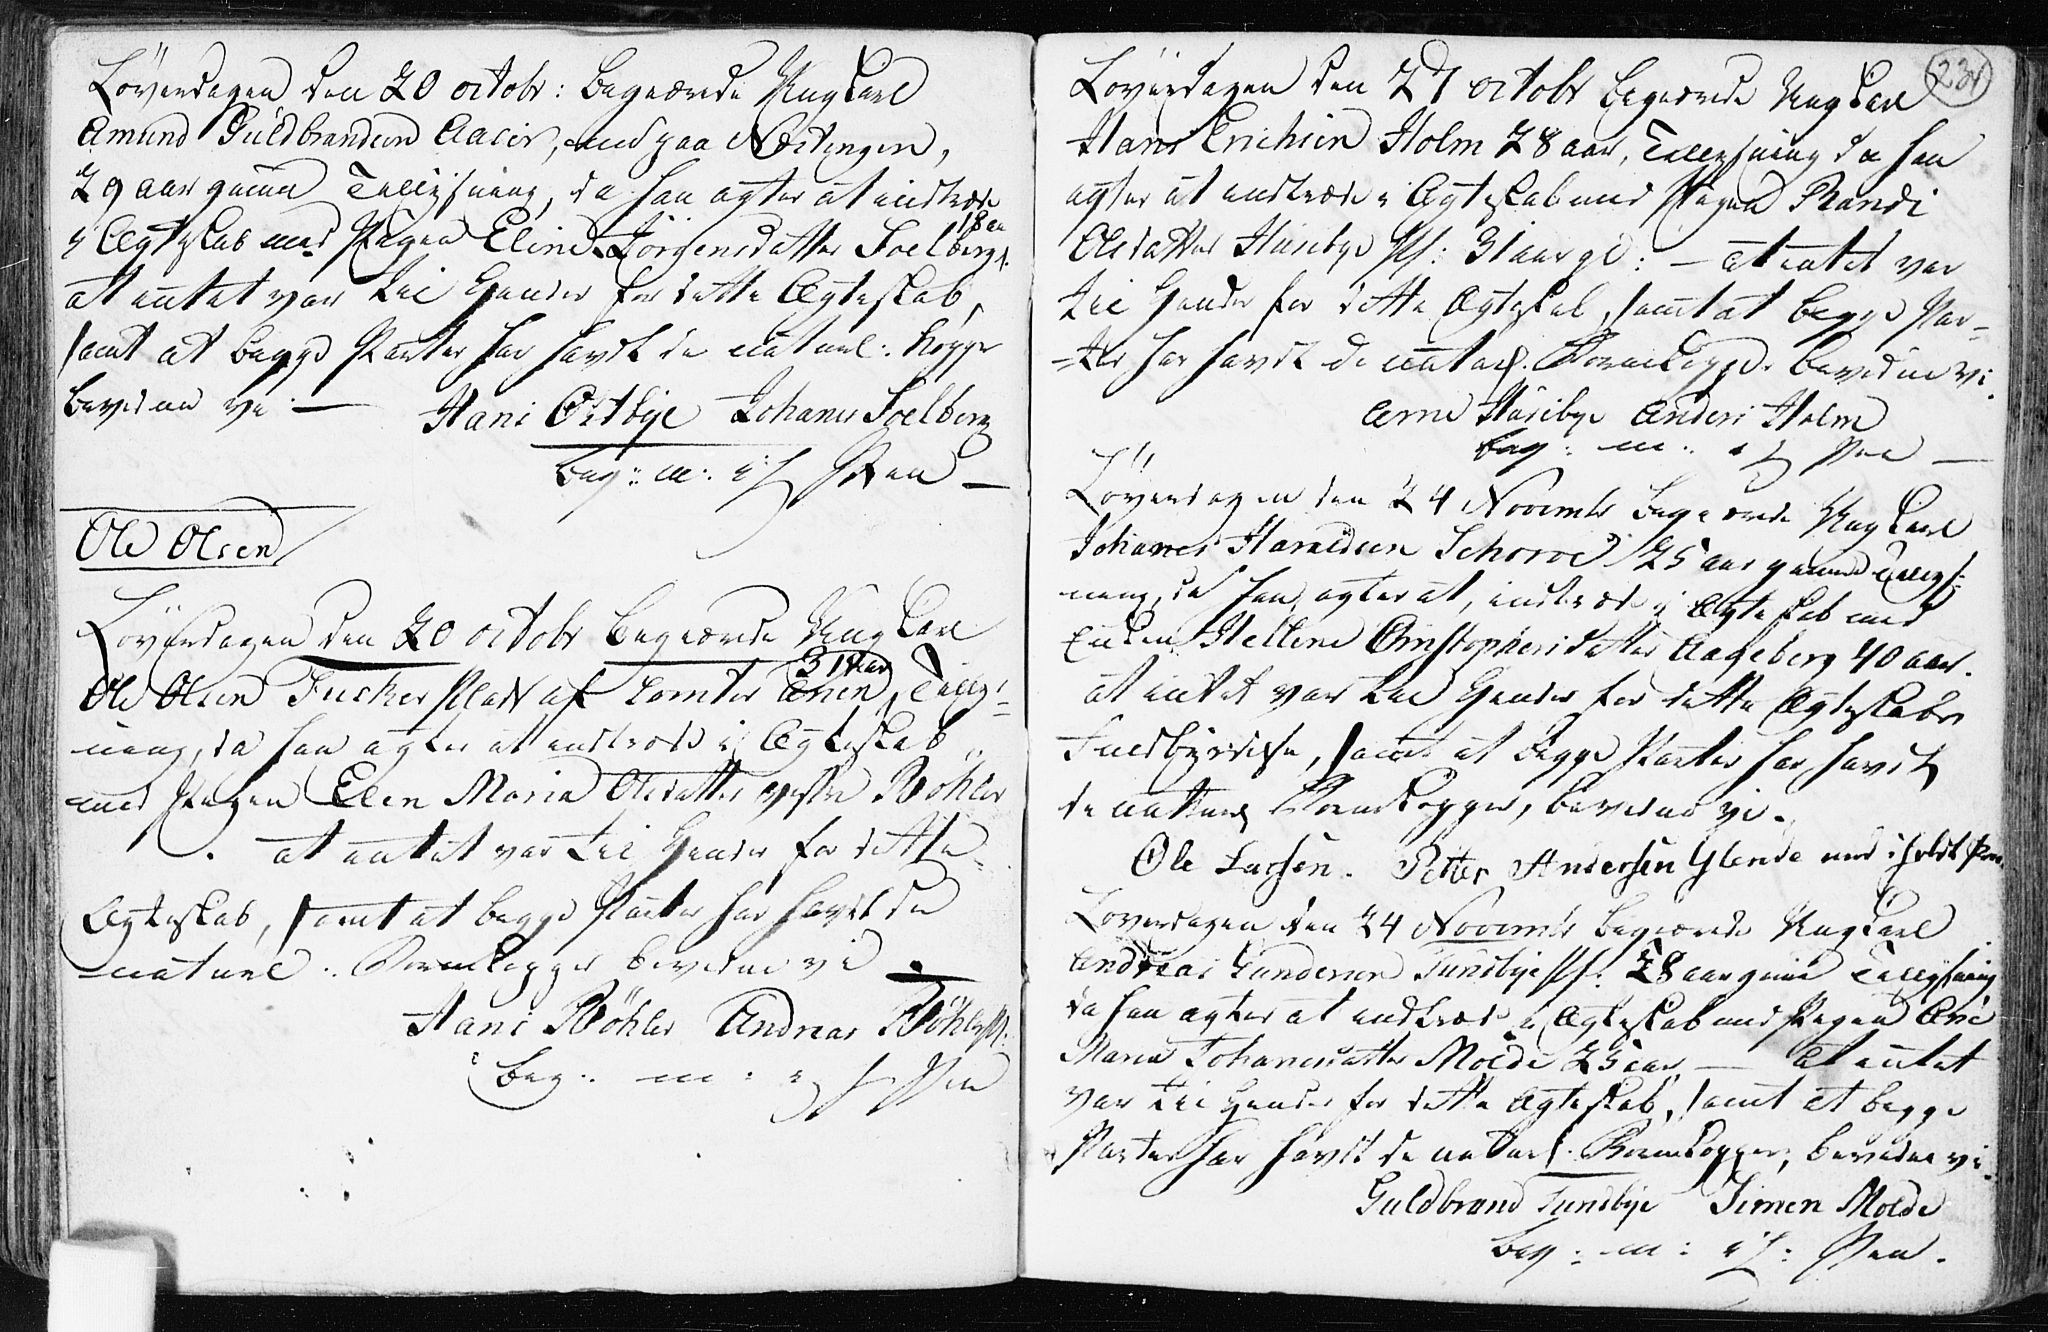 Löverdagen den 20 octobr: begærede Ungkarl
Amund Guldbrandsen Aaser, paa Næstingen,
29 aar gamel Tillysning, da han agter at indtræde
18 aa
i Ægteskab med Pigen Eline Jörgensdatter Soelberg.
at intet var til Hinder for dette Ægteskab,
samt at begge Parter har havdt de naturl: kopper
bevidne vi. — Hans Ostbye Johanes Soelberg
beg: m: i: h Pen —
Ole Olsen
Löverdagen den 20 octobr begærede Ungkarl
31 aar
Ole Olsen Plads af Eier, Tillys-
ning, da han agter at indtræde i Ægteskab
med Pigen Elen Maria Olsdatter vestre Böhler
. at intet var til Hinder for dette
Ægteskab, samt at begge Parter har havdt de
naturl: Barnekopper bevidne vi.
Hans Böhler Andreas Böhler
beg: m: i h Pen
234
Loverdagen den 27 octobr begærede Ungkarl
Hans Erichsen Holm 28 aar, Tillysning da han
agter at indtræde i Ægteskab med Pigen Randi
Olsdatter Husebye Pl: 31 aar gl: — at intet var
til Hinder for dette Ægteskab, samt at begge Par-
-ter har havdt de naturl. Barnekopper. bevidne vi.
Arne Husebye Anders Holm
beg: m: i h Pen —
Löverdagen den 24 Novembr begærede Ungkarl
Johanes Haraldsen 25 aar gamel Tillys-
ning, da han agter at, indtræde i Ægteskab med
Enken Hellene Christophersdatter Aageberg 40 aar.
at intet var til Hinder for dette Ægteskabs
Fuldbyrdelse, samt at begge Parter har havdt
de naturl Barnekopper, bevidne vi.
Ole Larsen. Petter Andersen Glende med iholdt Pen.
Loverdagen den 24 Novembr begærede Ungkarl
Andreas Gundersen Tundbye Pl: 28 aar gamel Tillysning
da han agter at indtræde i Ægteskab med Pigen Ane
Maria Johanesdatter Molde 25 aar, — at intet
var til Hinder for dette Ægteskab, samt at begge
Parter har havdt de naturl. Barnekopper, bevidne vi.
Guldbrand Tundbye Simen Molde
beg: m: i h: Pen.